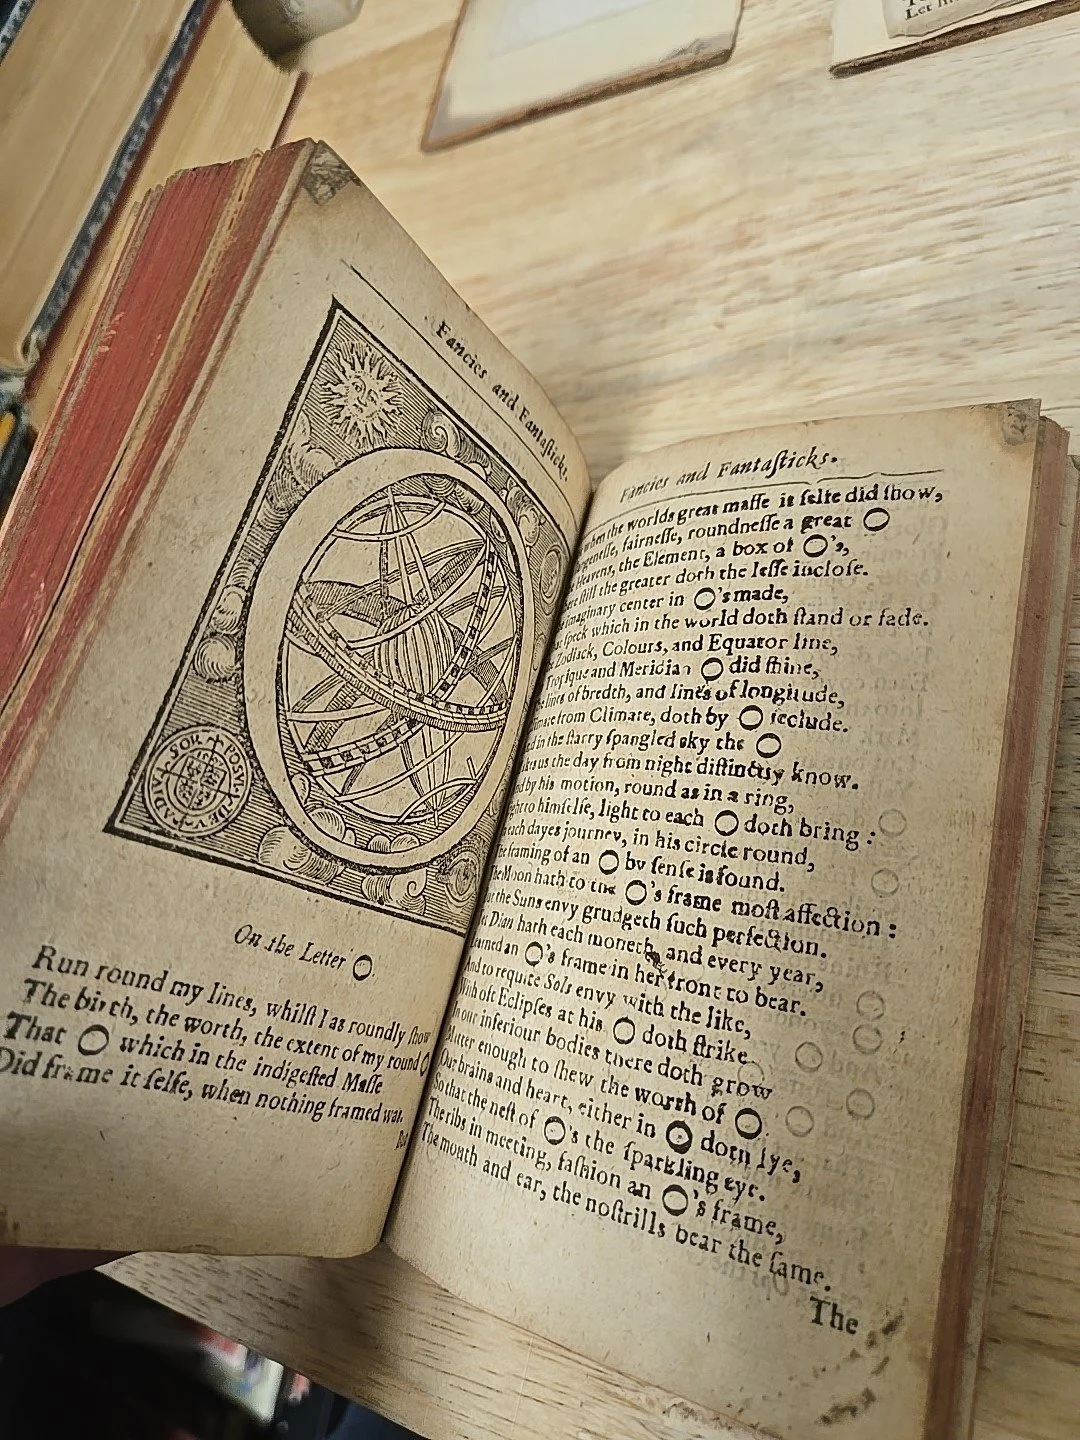 Let
Fancies and Fantaſticks.
On the Letter O.
Run round my lines, whilſt I as roundly ſhow
The birth, the worth, the extent of my round O
That O which in the indigeſted Maſſe
Did frame it ſelfe, when nothing framed was.
Fancies and Fantaſticks.
when the worlds great maſſe it ſelfe did ſhow,
fairneſſe, roundneſſe a great O
Heavens, the Element, a box of O's,
ſtill the greater doth the leſſe incloſe.
imaginary center in O's made,
ſpeck which in the world doth ſtand or fade.
Zodiack, Colours, and Equator line,
Tropique and Meridian O did ſhine,
lines of bredth, and lines of longitude,
from Climate, doth by O include.
in the ſtarry ſpangled sky the O
us the day from night diſtinctly know.
by his motion, round as in a ring,
to himſelfe, light to each O doth bring :
each dayes journey, in his circle round,
The framing of an O by ſenſe is found.
The Moon hath to the O's frame moſt affection :
the Suns envy grudgeth ſuch perfection.
Dian hath each moneth, and every year,
an O's frame in her front to bear.
And to requite Sols envy with the like,
With oft Eclipſes at his O doth ſtrike.
In our inferiour bodies there doth grow
Matter enough to ſhew the worth of O.
Our brains and heart, either in O doth lye,
So that the neſt of O's the ſparkling eye.
The ribs in meeting, faſhion an O's frame,
The mouth and ear, the noſtrills bear the ſame.
The